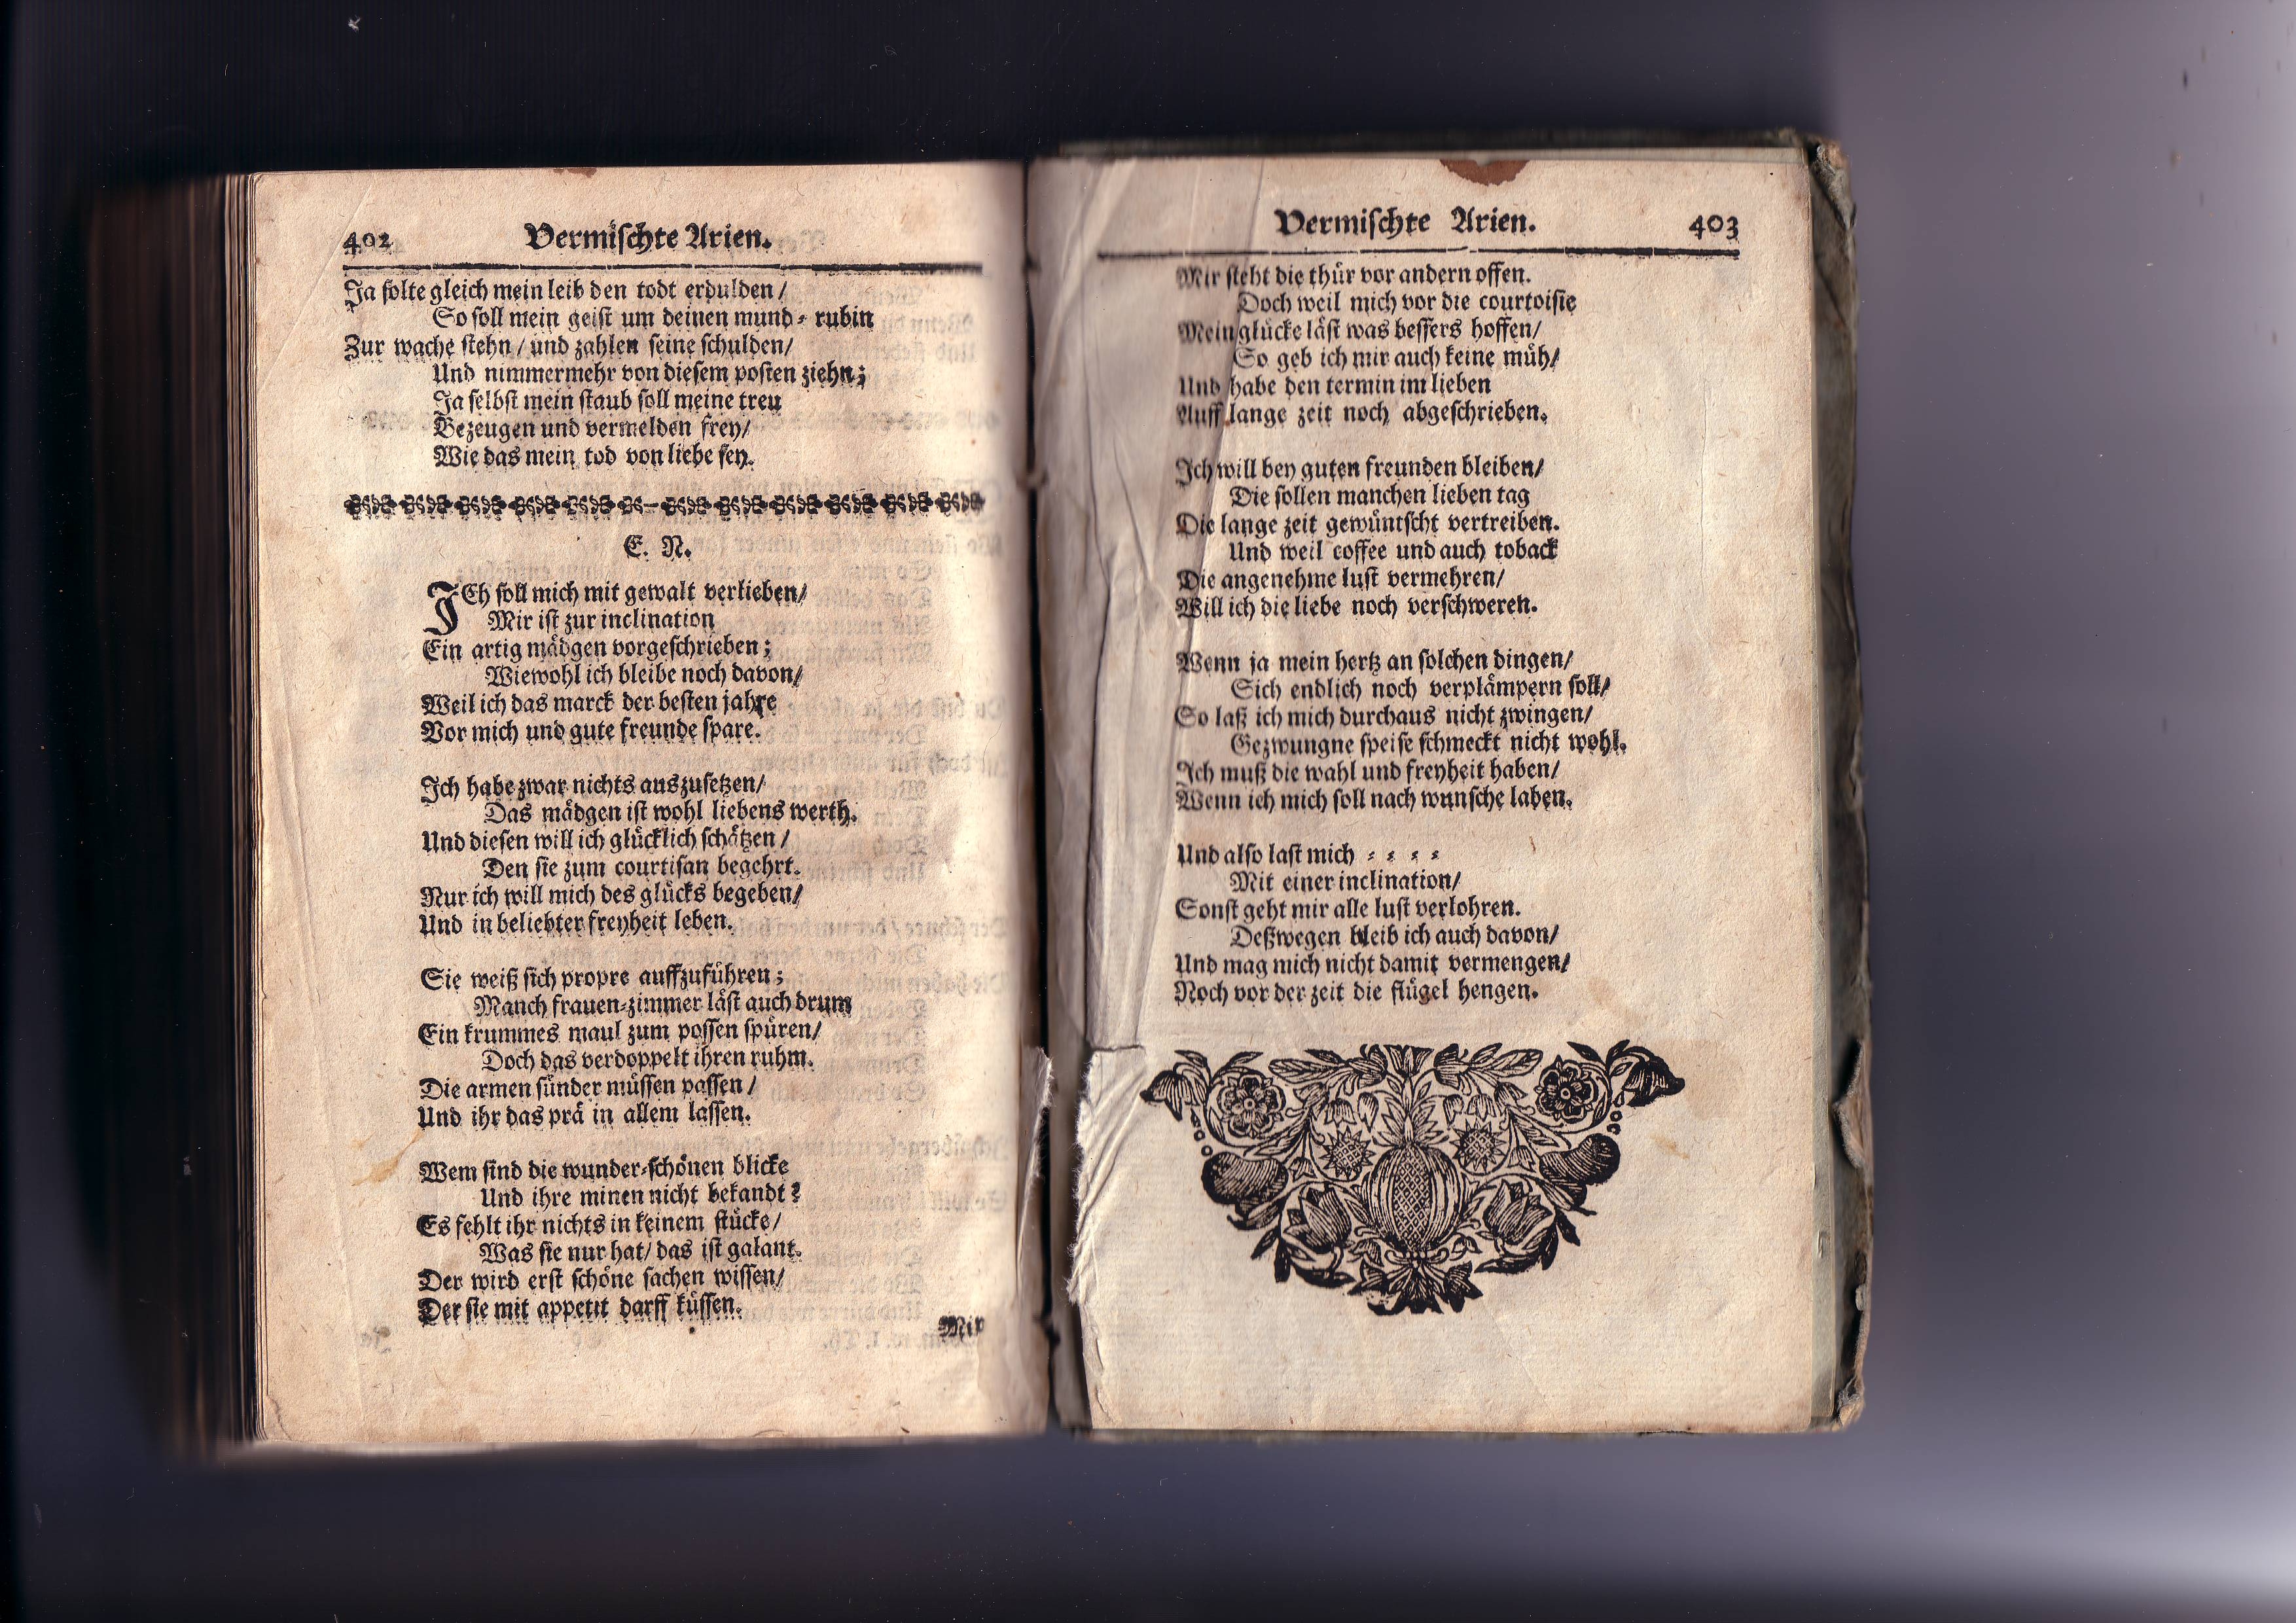 402 Vermischte Arien.
Ja solte gleich mein leib den todt erdulden /
So soll mein geist um deinen mund-rubin
Zur wache stehn / und zahlen seine schulden /
Und nimmermehr von diesem posten ziehn;
Ja selbst mein staub soll meine treu
Bezeugen und vermelden frey /
Wie das mein tod von liebe sey.
E. N.
ICh soll mich mit gewalt verlieben /
Mir ist zur inclination
Ein artig mädgen vorgeschrieben;
Wiewohl ich bleibe noch davon /
Weil ich das marck der besten jahre
Vor mich und gute freunde spare.
Ich habe zwar nichts auszusetzen /
Das mädgen ist wohl liebens werth.
Und diesen will ich glücklich schätzen /
Den sie zum courtisan begehrt.
Nur ich will mich des glücks begeben /
Und in beliebter freyheit leben.
Sie weiß sich propre auffzuführen;
Manch frauen-zimmer läst auch drum
Ein krummes maul zum possen spüren /
Doch das verdoppelt ihren ruhm.
Die armen sünder müssen passen /
Und ihr das prä in allem lassen.
Wem sind die wunder-schönen blicke
Und ihre minen nicht bekandt?
Es fehlt ihr nichts in keinem stücke /
Was sie nur hat / das ist galant.
Der wird erst schöne sachen wissen /
Der sie mit appetit darff küssen.
Mir
Vermischte Arien. 403
Mir steht die thür vor andern offen.
Doch weil mich vor die courtoisie
Mein glücke läst was bessers hoffen /
So geb ich mir auch keine müh /
Und habe den termin im lieben
Auff lange zeit noch abgeschrieben.
Ich will bey guten freunden bleiben /
Die sollen manchen lieben tag
Die lange zeit gewüntscht vertreiben.
Und weil coffee und auch toback
Die angenehme lust vermehren /
Will ich die liebe noch verschweren.
Wenn ja mein hertz an solchen dingen /
Sich endlich noch verplämpern soll /
So laß ich mich durchaus nicht zwingen /
Gezwungne speise schmeckt nicht wohl.
Ich muß die wahl und freyheit haben /
Wenn ich mich soll nach wunsche laben.
Und also last mich - - - -
Mit einer inclination /
Sonst geht mir alle lust verlohren.
Deßwegen bleib ich auch davon /
Und mag mich nicht damit vermengen /
Noch vor der zeit die flügel hengen.